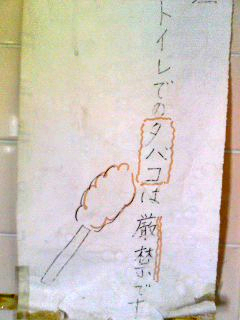 トイレでのタバコは厳禁です